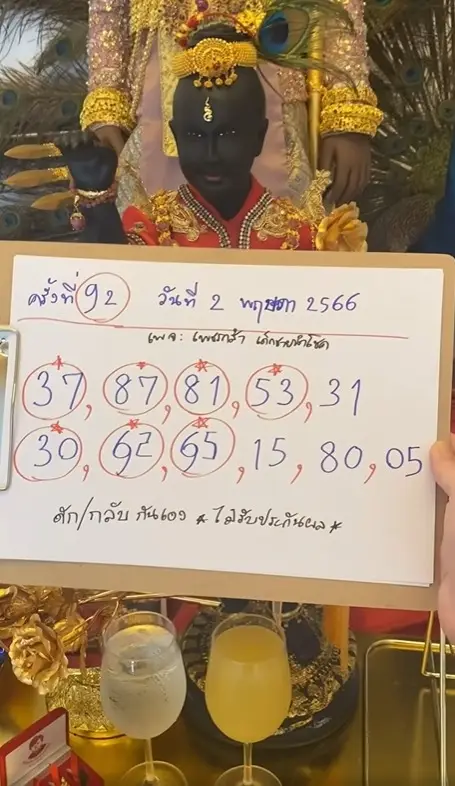 ครั้งที่ 92 วันที่ 2 พฤษภา 2566
เพจ: เพชรกล้า เด็กชายนำโชค
37, 87, 81, 53, 31
30, 62, 65, 15, 80, 05
ตัก/กลับ กันเอง * ไม่รับประกันผล *